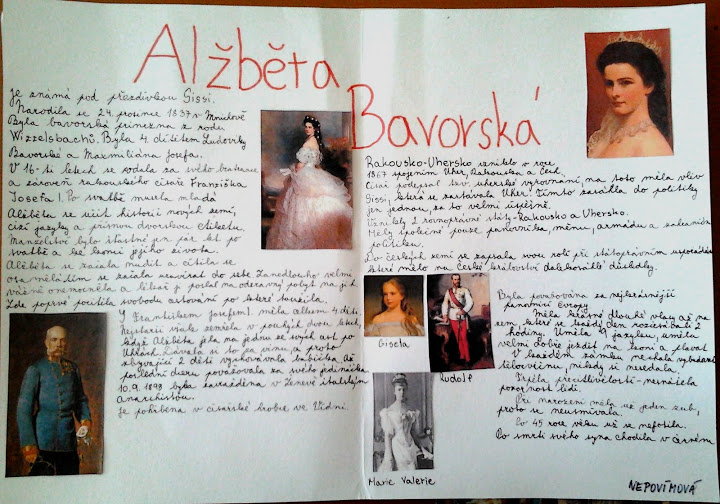 Alžběta
Bavorská
Je známá pod přezdívkou Sissi.
Narodila se 24. prosince 1837 v Mnichově
Byla bavorská princezna z rodu
Wizzelsbachů. Byla 4. dítětem Ludoviky
Bavorské a Maxmiliána Josefa.
V 16-ti letech se vdala za svého bratrance
a zároveň rakouského císaře Františka
Josefa I. Po svatbě musela mladá
Alžběta se učit historii nových zemí,
cizí jazyky a přísnou dvorskou etiketu.
Manželství bylo šťastné jen pár let po
svatbě a ke konci jejího života.
Alžběta se začala nudit a cítila se
osamělá. Začala uzavírat do sebe. Zanedlouho velmi
vážně onemocněla a lékař ji poslal na ozdravný pobyt na jih.
Zde poprvé pocítila svobodu cestování po které toužila.
S Františkem Josefem I. měla celkem 4 děti.
Nejstarší však zemřela v pouhých dvou letech,
když Alžběta jela na jednu ze svých cest po
Uhrách. Dávala si to za vinu, a proto
zbývající 2 děti vychovávala babička. Až
poslední dceru považovala za svého jedináčka.
10. 9. 1898 byla zavražděna v Ženevě italským
anarchistou.
Je pohřbena v císařské hrobce ve Vídni.
Rakousko-Uhersko vzniklo v roce
1867 spojením Uher, Rakouska a Čech.
Císař podepsal tzv. uherské vyrovnání, na toto měla vliv
Sissi, která se zastávala Uher. Tímto zasáhla do politiky
jen jednou, za to velmi úspěšně.
Vznikly 2 rovnoprávné státy - Rakousko a Uhersko.
Měly společné pouze panovníka, měnu, armádu a zahraniční
politiku.
Do českých zemí se zapsala svou rolí při státoprávním uspořádání
které mělo na České království dalekosáhlé důsledky.
Gisela
Rudolf
Marie Valerie
Byla považována za nejkrásnější
panovnici Evropy
Měla krásné dlouhé vlasy až na
zem, které se každý den rozčesávali 2
hodiny. Uměla 9 jazyků, uměla
velmi dobře jezdit na koni a plavat
V každém zámku nechala vybudovat
tělocvičnu, nikdy si nesedala.
Trpěla přecitlivělostí - nesnášela
pozornost lidí.
Při narození měla už jeden zub,
proto se neusmívala.
Po 45 roce věku už se nefotila.
Po smrti svého syna chodila v černém
NEPOVÍMOVÁ